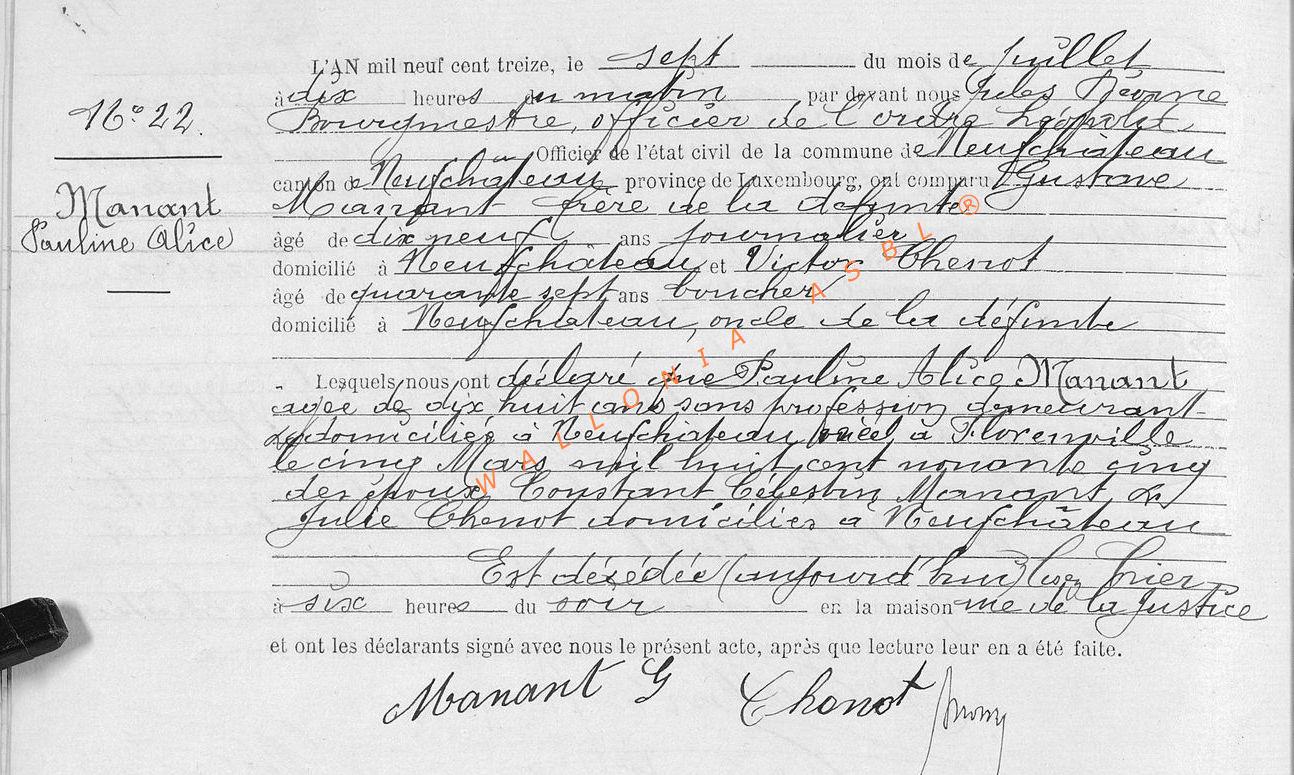 N° 22.
Manant
Pauline Alice
L'AN mil neuf cent treize, le sept du mois de juillet
à dix heures du matin par devant nous Jules
Bourgmestre, officier de l'ordre Léopold
Officier de l'état civil de la commune de Neufchâteau
canton de Neufchâteau province de Luxembourg, ont comparu Gustave
Manant frère de la défunte
âgé de dix neuf ans journalier
domicilié à Neufchâteau et Victor Chenot
âgé de quarante sept ans boucher
domicilié à Neufchâteau, oncle de la défunte
Lesquels nous ont déclaré que Pauline Alice Manant
agée de dix huit ans sans profession demeurant
& domiciliée à Neufchateau née à Florenville
le cinq Mars mil huit cent nonante cinq
des époux Constant Célestin Manant &
Julie Chenot domiciliés à Neufchâteau
Est décédée (aujourd'hui) lisez hier
à six heures du soir en la maison rue de la Justice
et ont les déclarants signé avec nous le présent acte, après que lecture leur en a été faite.
Manant G Chenot
WALLONIA ASBL ®